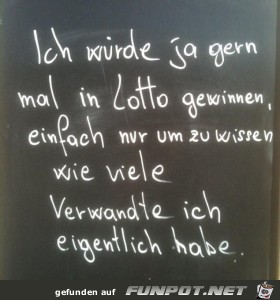 Ich würde ja gern
mal in Lotto gewinnen,
einfach nur um zu wissen
wie viele
Verwandte ich
eigentlich habe.
gefunden auf FUNPOT.NET